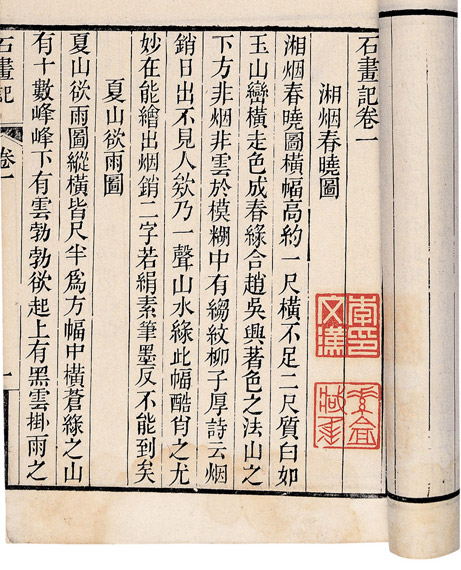 石畫記卷一
湘烟春曉圖
湘烟春曉圖橫幅高約一尺橫不足二尺質白如
玉山巒橫走色成春綠合趙吳興著色之法山之
下方非烟非雲於模糊中有縐紋柳子厚詩云烟
銷日出不見人欸乃一聲山水綠此幅酷肖之尤
妙在能繪出烟銷二字若絹素筆墨反不能到矣
夏山欲雨圖
夏山欲雨圖縱橫皆尺半爲方幅中橫蒼綠之山
有十數峰峰下有雲勃勃欲起上有黑雲掛雨之
石畫記
卷一
一